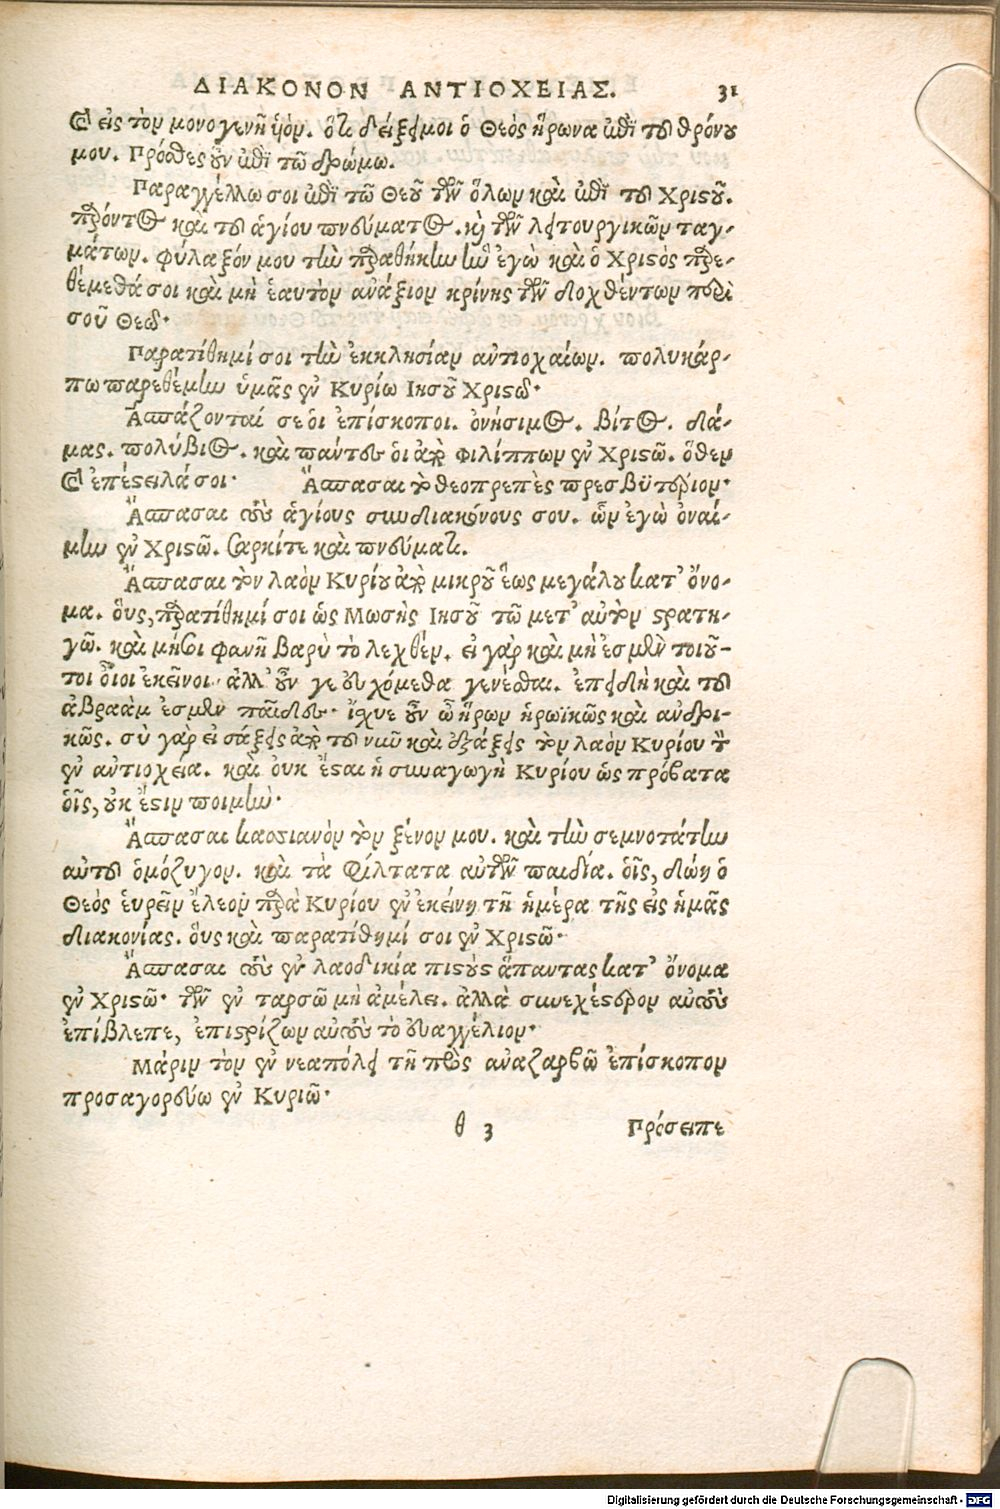 ΔΙΑΚΟΝΟΝ ΑΝΤΙΟΧΕΙΑΣ. 31
καὶ εἰς τὸν μονογενῆ ὑόν. ὅτι δείξει μοι ὁ Θεὸς ἥρωνα ἐπὶ τοῦ θρόνου
μου. Πρόσθες οὖν ἐπὶ τῶ δρόμω.
Παραγγέλλω σοι ἐπὶ τῶ Θεοῦ τῶν ὅλων καὶ ἐπὶ τοῦ Χριστοῦ.
παρόντος καὶ τοῦ ἁγίου πνεύματος. καὶ τῶν λειτουργικῶν ταγ-
μάτων. φύλαξόν μου τὴν παραθήκην ἣν ἐγὼ καὶ ὁ Χριστὸς παρε-
θέμεθά σοι καὶ μὴ ἑαυτὸν ἀνάξιον κρίνης τῶν δοχθέντων περὶ
σοῦ Θεῶ.
Παρατίθημί σοι τὴν ἐκκλησίαν ἀντιοχαίων. πολυκάρ-
πω παρεθέμην ὑμᾶς ἐν Κυρίω Ιησοῦ Χριστῶ.
Ἀσπάζονταί σε ὁι ἐπίσκοποι. ὀνήσιμος. βίτος. δά-
μας. πολύβιος. καὶ πάντες ὁι ἀπὸ φιλίππων ἐν Χριστῶ. ὅθεν
καὶ ἐπέστειλά σοι. Ἄσπασαι τὸ θεοπρεπὲς πρεσβϋτέριον.
Ἄσπασαι τοὺς ἁγίους συνδιακόνους σου. ὧν ἐγὼ ὀναί-
μην ἐν Χριστῶ. σαρκίτε καὶ πνεύματι.
Ἄσπασαι τὸν λαὸν Κυρίου ἀπὸ μικροῦ ἕως μεγάλου κατ’ ὄνο-
μα. ὅυς, παρατίθημί σοι ὡς Μωσῆς Ιησοῦ τῶ μετ’ αὐτὸν στρατη-
γῶ. καὶ μήσοι φανῆ βαρὺ τὸ λεχθέν. εἰ γὰρ καὶ μὴ ἐσμὲν τοιοῦ-
τοι ὅιοι ἐκεῖνοι. ἀλλ’ οὖν γε ευχόμεθα γενέσθαι. ἐπειδὴ καὶ τοῦ
ἀβραὰμ ἐσμὲν παῖδες. ἴσχυε οὖν ὦ ἥρων ἡρωϊκῶς καὶ ἀνδρι-
κῶς. σὺ γὰρ εἰσάξεις ἀπὸ τοῦ νῦν καὶ ἐξάξεις τὸν λαὸν Κυρίου τὸν
ἐν ἀντιοχεία. καὶ ὀυκ ἔσται ἡ συναγωγὴ Κυρίου ὡς πρόβατα
ὁῖς, οὐκ ἔστιν ποιμήν.
Ἄσπασαι κασσιανὸν τὸν ξένον μου. καὶ τὴν σεμνοτάτην
αὐτοῦ ὁμόζυγον. καὶ τὰ φίλτατα αὐτῶν παιδία. ὁῖς, δώη ὁ
Θεὸς ἑυρεῖν ἔλεον παρὰ Κυρίου ἐν ἐκείνη τῆ ἡμέρα τῆς εἰς ἡμᾶς
διακονίας. ὅυς καὶ παρατίθημί σοι ἐν Χριστῶ.
Ἄσπασαι τοὺς ἐν λαοδικία πιστοὺς ἅπαντας κατ’ ὄνομα
ἐν Χριστῶ. τῶν ἐν ταρσῶ μὴ ἀμέλει. ἀλλὰ συνεχέστερον αὐτοὺς
ἐπίβλεπε, ἐπιστρίζων αὐτοὺς τὸ ευαγγέλιον.
Μάριν τὸν ἐν νεαπόλει τῆ πρὸς ἀναζαρβῶ ἐπίσκοπον
προσαγορεύω ἐν Κυριῶ.
θ 3 Πρόσειπε
Digitalisierung gefördert durch die Deutsche Forschungsgemeinschaft - DFG